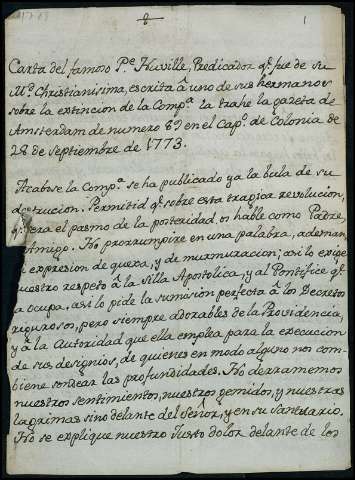 Carta del famoso P.e Nuville, Predicador q.e fue de su
M.d Christianisima, escrita â uno de sus hermanos
sobre la extincion de la Comp.a la trahe la gazeta de
Amsterdam de numero 89 en el Cap.o de Colonia de
28 de Septiembre de 1773.
Acabose la Comp.a se ha publicado ya la bula de su
destrucion. Permitid q.e sobre esta tragica revolucion,
q.e sera el pasmo de la posteridad os hable como Padre,
Amigo. No prorrumpire en una palabra, ademan
ô expresion de quexa, y de murmuracion; asi lo exige
nuestro respeto â la Silla Apostolica, y al Pontifice q.e
la ocupa, asi lo pide la sumision perfecta â los Decretos
rigurosos, pero siempre adorables de la Providencia,
y â la Autoridad que ella emplea para la execucion
de sus designios, de quienes en modo alguno nos com-
biene sondear las profundidades. No derramemos
nuestros sentimientos, nuestros gemidos, y nuestras
lagrimas sino delante del Señor, y en su Santuario.
No se explique nuestro Justo dolor delante de los